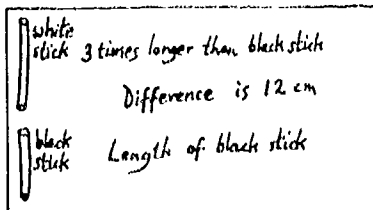 white
stick 3 times longer than black stick
Difference is 12 cm
black
stick
Length of black stick